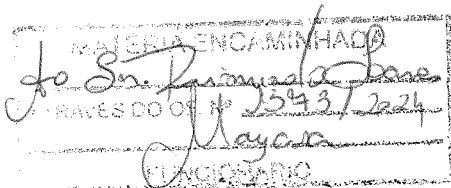 MATÉRIA ENCAMINHADA
Ao Sr.
ATRAVÉS DO OF. Nº 1373/2024
Mayara
FUNCIONÁRIO